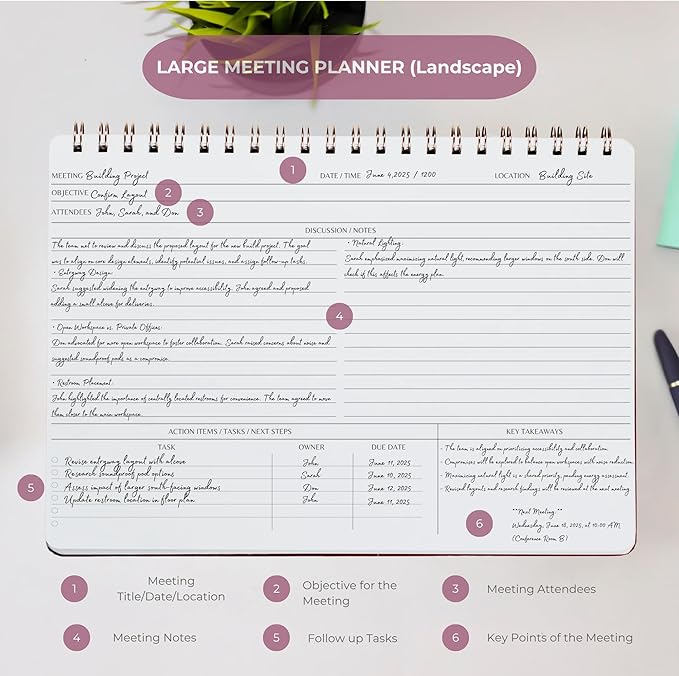 LARGE MEETING PLANNER (Landscape)
MEETING Building Project
1
DATE / TIME June 4, 2025 / 1200
LOCATION Building Site
OBJECTIVE Confirm Layout
2
ATTENDEES John, Sarah, and Don
3
DISCUSSION / NOTES
The team met to review and discuss the proposed layout for the new build project. The goal
was to align on core design elements, identify potential issues, and assign follow-up tasks.
• Entryway Design:
Sarah suggested widening the entryway to improve accessibility. John agreed and proposed
adding a small alcove for deliveries.
• Open Workspace vs. Private Offices:
Don advocated for more open workspace to foster collaboration. Sarah raised concerns about noise and
suggested soundproof pods as a compromise.
• Restroom Placement:
John highlighted the importance of centrally located restrooms for convenience. The team agreed to move
them closer to the main workspace.
• Natural Lighting:
Sarah emphasised maximizing natural light, recommending larger windows on the south side. Don will
check if this affects the energy plan.
4
ACTION ITEMS / TASKS / NEXT STEPS
TASK OWNER DUE DATE
Revise entryway layout with alcove John June 11, 2025
Research soundproof pod options Sarah June 10, 2025
Assess impact of larger south-facing windows Don June 12, 2025
Update restroom location in floor plan John June 11, 2025
5
KEY TAKEAWAYS
- The team is aligned on prioritizing accessibility and collaboration.
- Compromises will be explored to balance open workspaces with noise reduction.
- Maximizing natural light is a shared priority, pending energy assessment.
- Revised layouts and research findings will be reviewed at the next meeting.
**Next Meeting:**
Wednesday, June 18, 2025, at 10:00 AM
(Conference Room B)
6
1 Meeting
Title/Date/Location
2 Objective for the
Meeting
3 Meeting Attendees
4 Meeting Notes
5 Follow up Tasks
6 Key Points of the Meeting